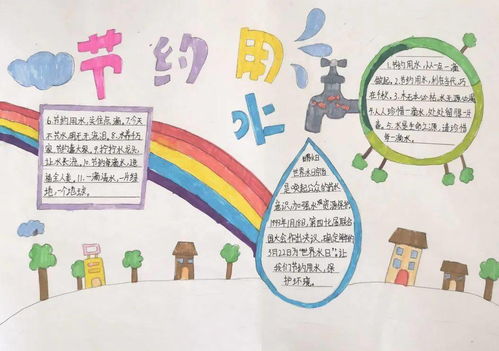 节约用水
6.节约用水,关住点滴。7.今天
不节水,明天无泪。8.水
家,节约靠大家。9.拧拧水龙头,
让水长流。10.节约每滴水,造
福全人类。11.一滴清水,一片绿
地,一个地球。
世界水日
世界水日宗旨
是唤起公众的节水
意识,加强水资源保护。
1993年1月18日,第四十七届联合
国大会作出决议,确定每年的
3月22日为“世界水日”。让
我们节约用水,保
护环境。
1.节约用水,从一点一滴
做起。2.节约用水,利在当代,功
在千秋。3.
4.人人珍惜一滴水,处处留得一片
春。5.水是生命之源,请珍惜
每一滴水。